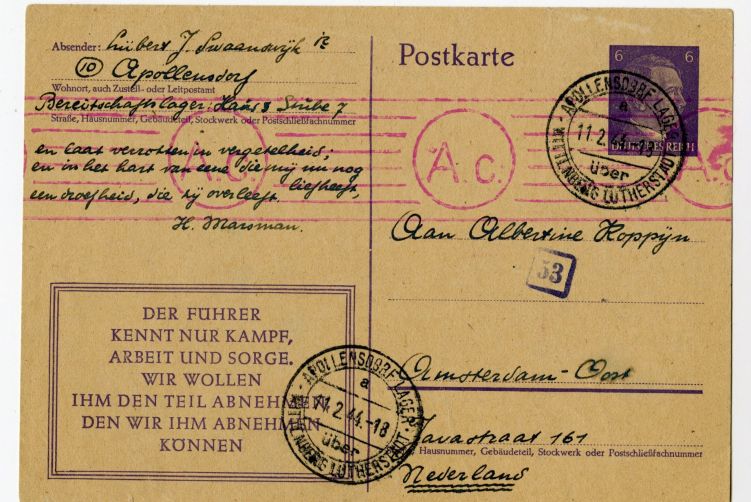 Absender: Lübert J. Swaanswijk
(10) Apollensdorf
Wohnort, auch Zustell- oder Leitpostamt
Bereitschaftslager: Haus 3 Stube 7
Straße, Hausnummer, Gebäudeteil, Stockwerk oder Postschließfachnummer
en laat verrotten in vergetelheid;
en in het hart van eene die mij nu nog
liefheeft,
een droefheid, die zij overleeft.
H. Marsman.
DER FÜHRER
KENNT NUR KAMPF,
ARBEIT UND SORGE.
WIR WOLLEN
IHM DEN TEIL ABNEHMEN
DEN WIR IHM ABNEHMEN
KÖNNEN
Postkarte
6 6
DEUTSCHES REICH
APOLLENSDORF LAGER
a
11.2.44.-18
über
WITTENBERG LUTHERSTADT
A.c.
A.c.
Aan Albertine Koppijn
53
Amsterdam-Oost
Javastraat 161
Hausnummer, Gebäudeteil, Stockwerk oder Postschließfachnummer
Nederland
APOLLENSDORF LAGER
a
11.2.44.-18
über
WITTENBERG LUTHERSTADT